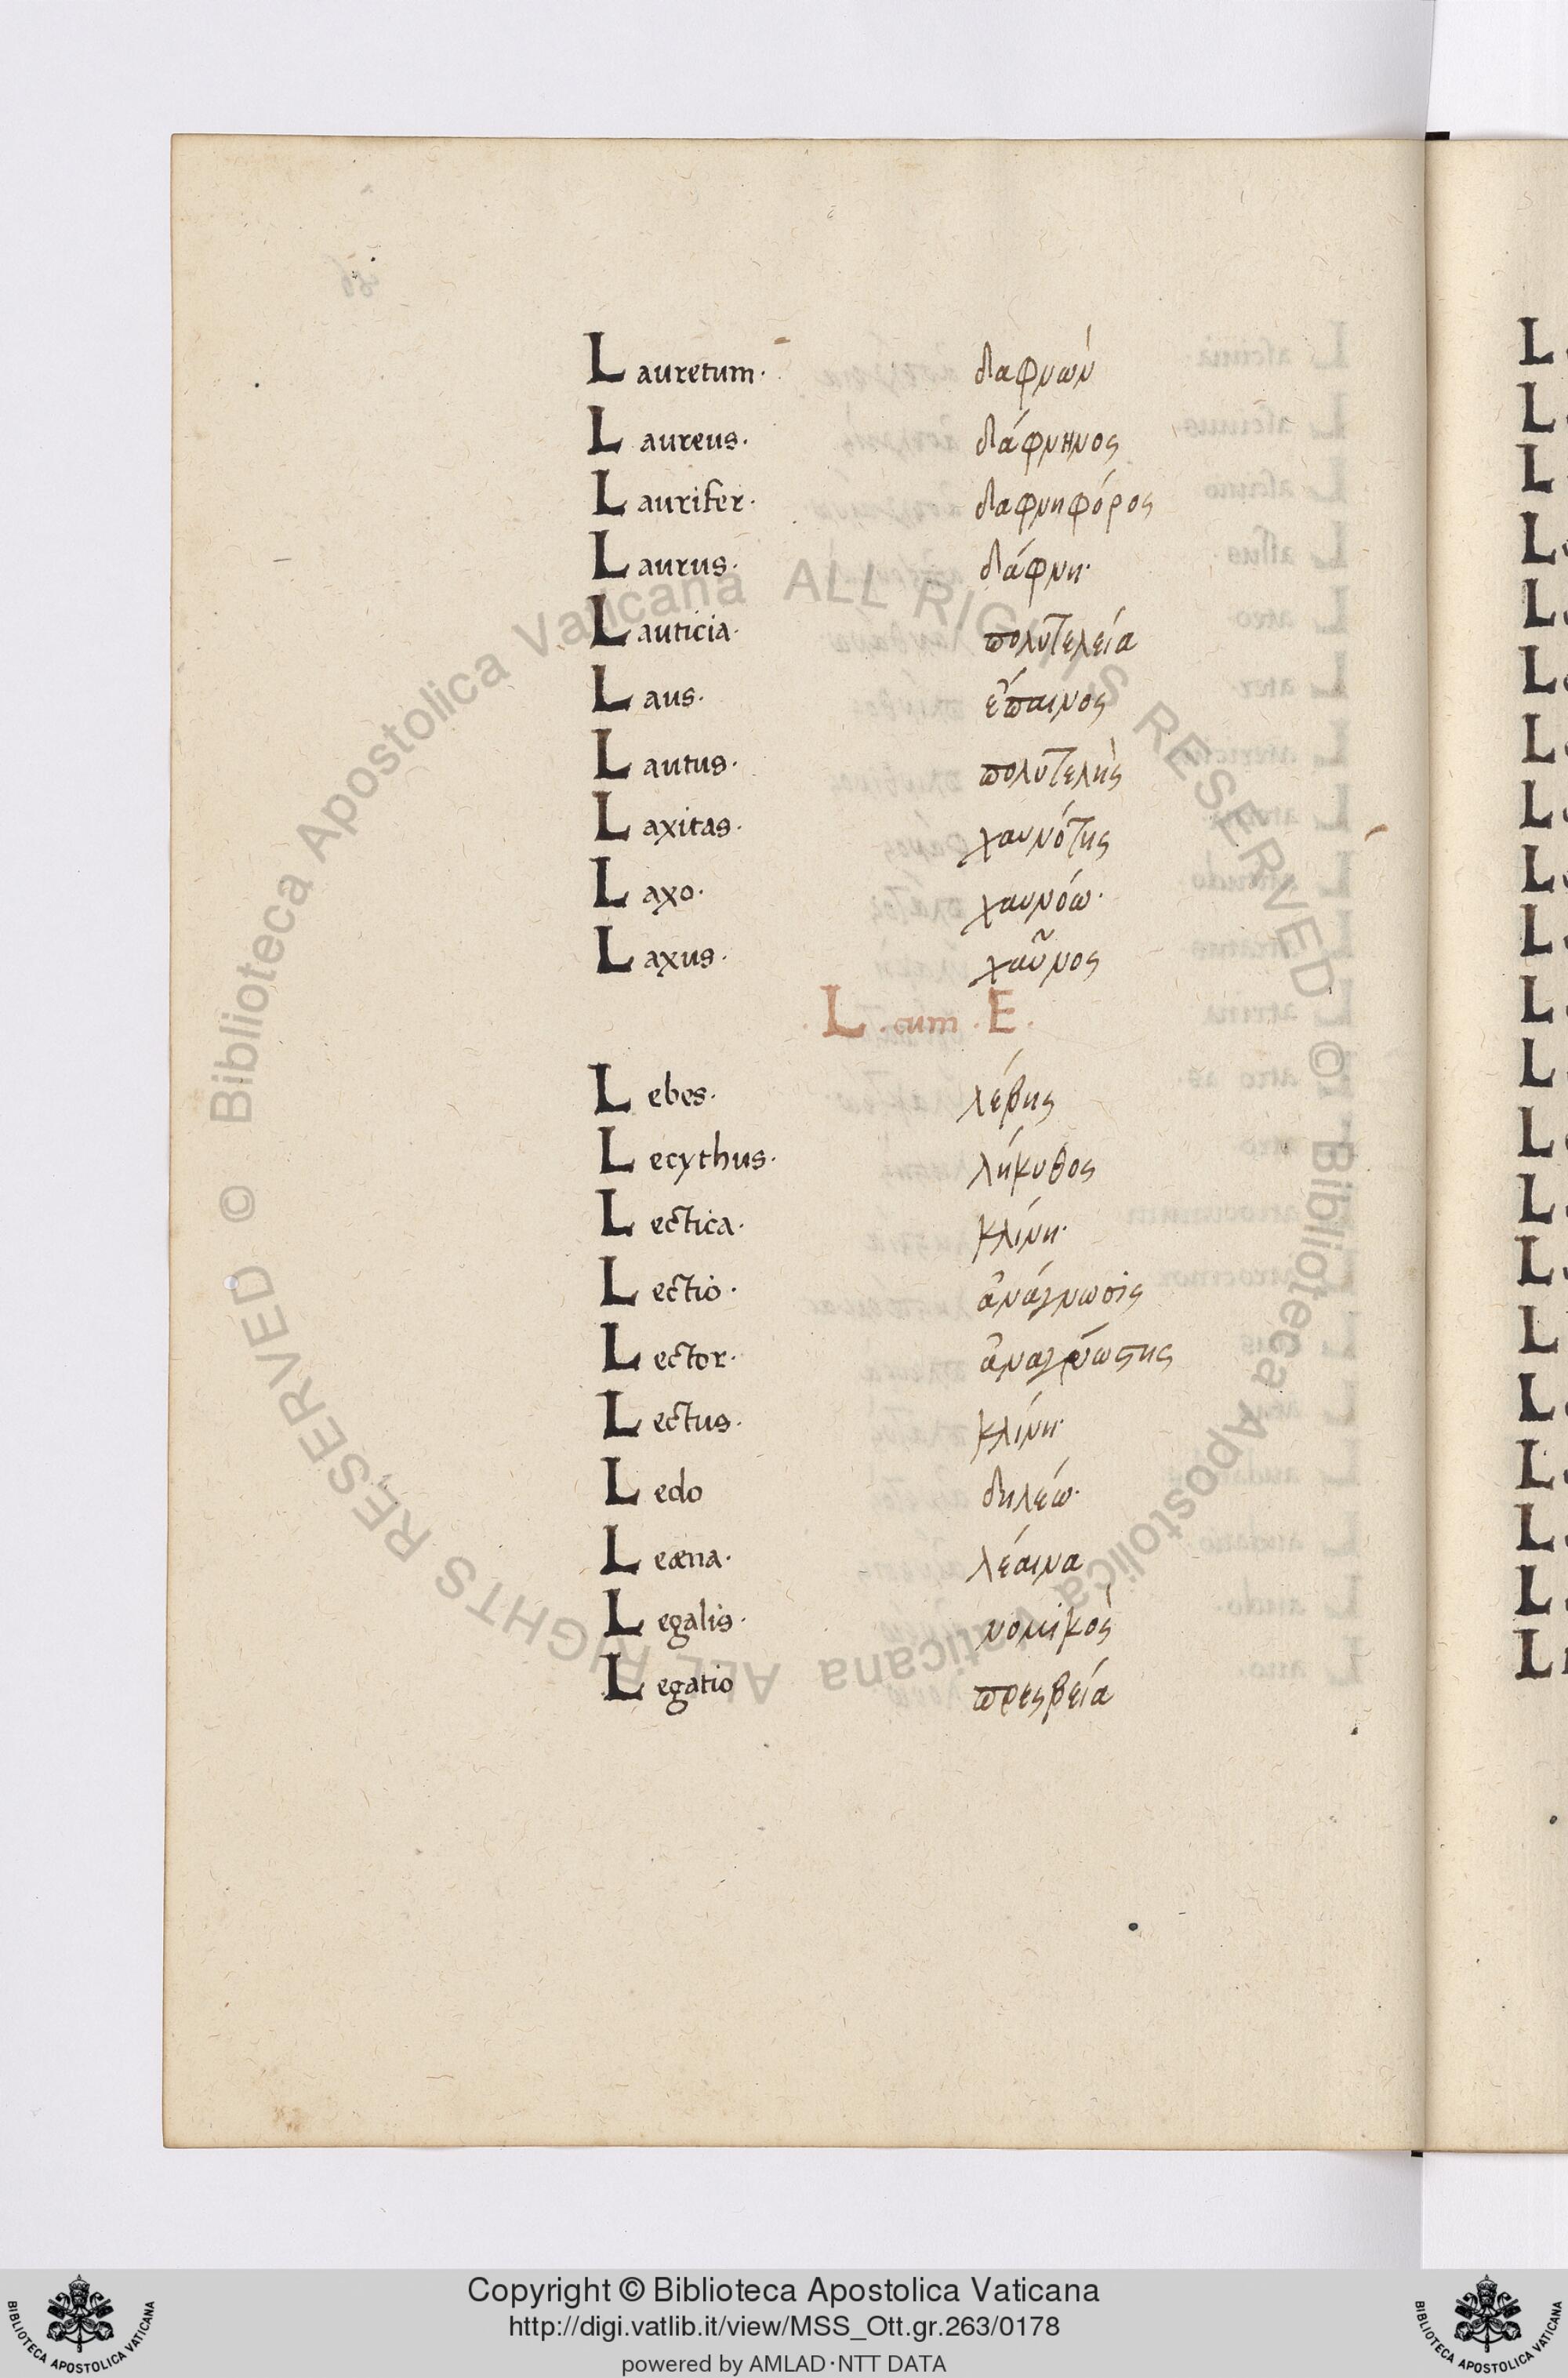 Lauretum· δαφνών
Laureus· δάφνηνος
Laurifer· δαφνηφόρος
Laurus· δάφνη·
Lauticia· πολυτελεία
Laus· ἔπαινος
Lautus· πολυτελὴς
Laxitas· χαυνότης
Laxo· χαυνόω·
Laxus· χαῦνος
· L · cum · E ·
Lebes· λέβης
Lecythus· λήκυθος
Lectica· κλίνη·
Lectio· ἀνάγνωσις
Lector· ἀναγνώστης
Lectus· κλίνη·
Ledo δηλέω·
Leæna· λέαινα
Legalis· νομικὸς
Legatio πρεσβεία
Copyright © Biblioteca Apostolica Vaticana
http://digi.vatlib.it/view/MSS_Ott.gr.263/0178
powered by AMLAD·NTT DATA
BIBLIOTECA APOSTOLICA VATICANA
BIBLIOTECA APOSTOLICA VATICANA
© Biblioteca Apostolica Vaticana ALL RIGHTS RESERVED
© Biblioteca Apostolica Vaticana ALL RIGHTS RESERVED